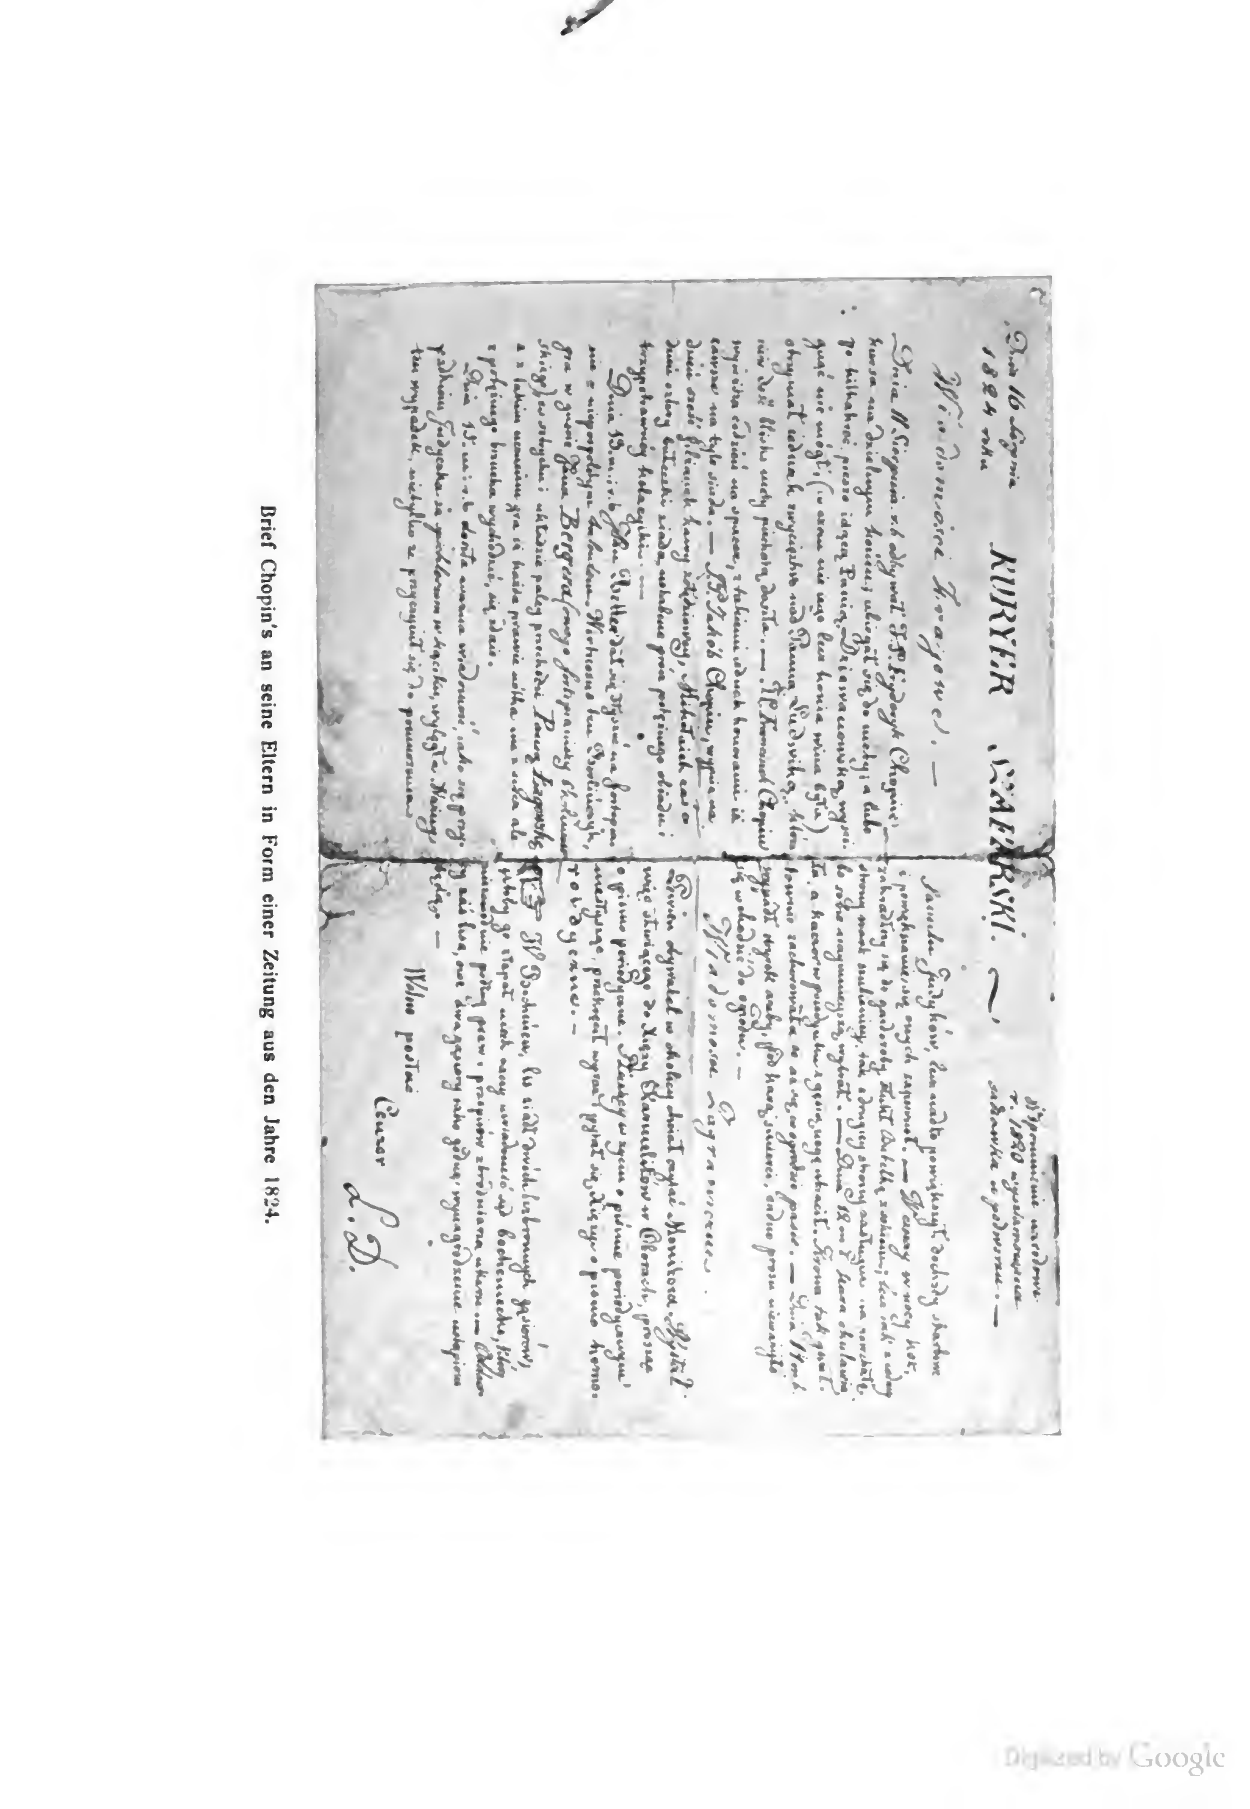 Dnia 16 Sierpnia
1824 roku
KURYER SZAFARSKI.
Wspomnienie narodowe
r. 1820
w podwórzu. —
Wiadomości Krajowe. —
Dnia 11. Sierpnia r. b. odbywał J. P. Fryderyk Chopin
kursa na dzielnym koniu; ubiegał się do mety; a lubo
go kilkakroć pieszo idącą Panią Dziewanowską wyści-
gnąć nie mógł, (w czem nie jego lecz konia wina była)
otrzymał jednak zwycięstwo nad Panną Ludwiką, która
już dość blisko mety piechotą doszła. — J. P. Franciszek Chopin
wyjeżdża codzień na spacer, z takiemi jednak honorami iż
zawsze na tyle siada. — J. P. Jakób Chopin, wypija na
dzień sześć filiżanek kawy żołędziowej, Mikołajek zaś co
dzień cztery bułeczki zjada
Dnia 13. m. i r. b. dał się słyszeć na fortepia-
nie z niepospolitym talentem.
gra w guście Pana Bergera
z takiem uczuciem gra iż każda prawie nótka nie z serca ale
z potężnego brzucha wychodzić się zdaje.
Dnia 15. m. i r. b. doszła ważna wiadomość, jako się przy-
padkiem Indyczka za spichlerzem w kąciku wylęgła. Ważny
ten wypadek, nietylko że przyczynił się do pomnożenia
familii Indyków, lecz nadto powiększył dochody skarbowe
i pomnażanie się onych zapewnił. — Wczoraj w nocy kot,
zakradłszy się do garderoby stłukł butelkę z sokiem; lecz jak z jednej
strony wart szubienicy, tak z drugiej strony zasługuje na pochwałę,
bo sobie najmniejszą wybrał. — Dnia 12. m. b. kura okulawia-
ła a kaczor w pojedynku z gęsią nogę utracił. Krowa tak gwał-
townie zachorowała że aż się w ogrodzie pasie. — Dnia 14. m. b.
zapadł wyrok ażeby, pod karą śmierci, żadne prosię nie ważyło
się wchodzić do ogrodu. —
Wiadomości Zagraniczne.
Pewien obywatel w okolicy chciał czytać Monitora. Wysłał
więc służącego do Xięży Karmelitów w Oborach, prosząc
o pismo peryodyczne. Służący w życiu o piśmie peryodycznym
nie słysząc, przekręcił wyraz i pytał się Xięży o pismo hemo-
roidyczne. —
W Bocheńcu, lis zjadł dwóch bezbronnych gąsiorów;
ktoby go złapał niech raczy uwiadomić sąd bocheniecki, który
niezawodnie podług praw i przepisów zbrodniarza ukarze.
tym zaś lisa, owe dwa gąsiory jako godną wynagrodzenie ustąpione
będą. —
Wolno posłać
Cenzor
L. D.
Brief Chopin's an seine Eltern in Form einer Zeitung aus den Jahre 1824.
Digitized by Google